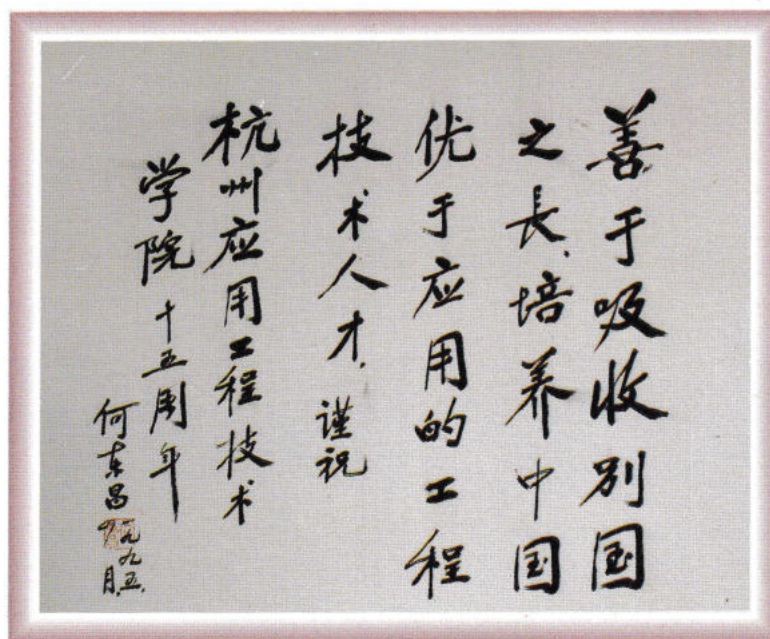 善于吸收别国
之長，培养中国
优于应用的工程
技术人才，谨祝
杭州应用工程技术
学院十五周年
何东昌
一九九五
月